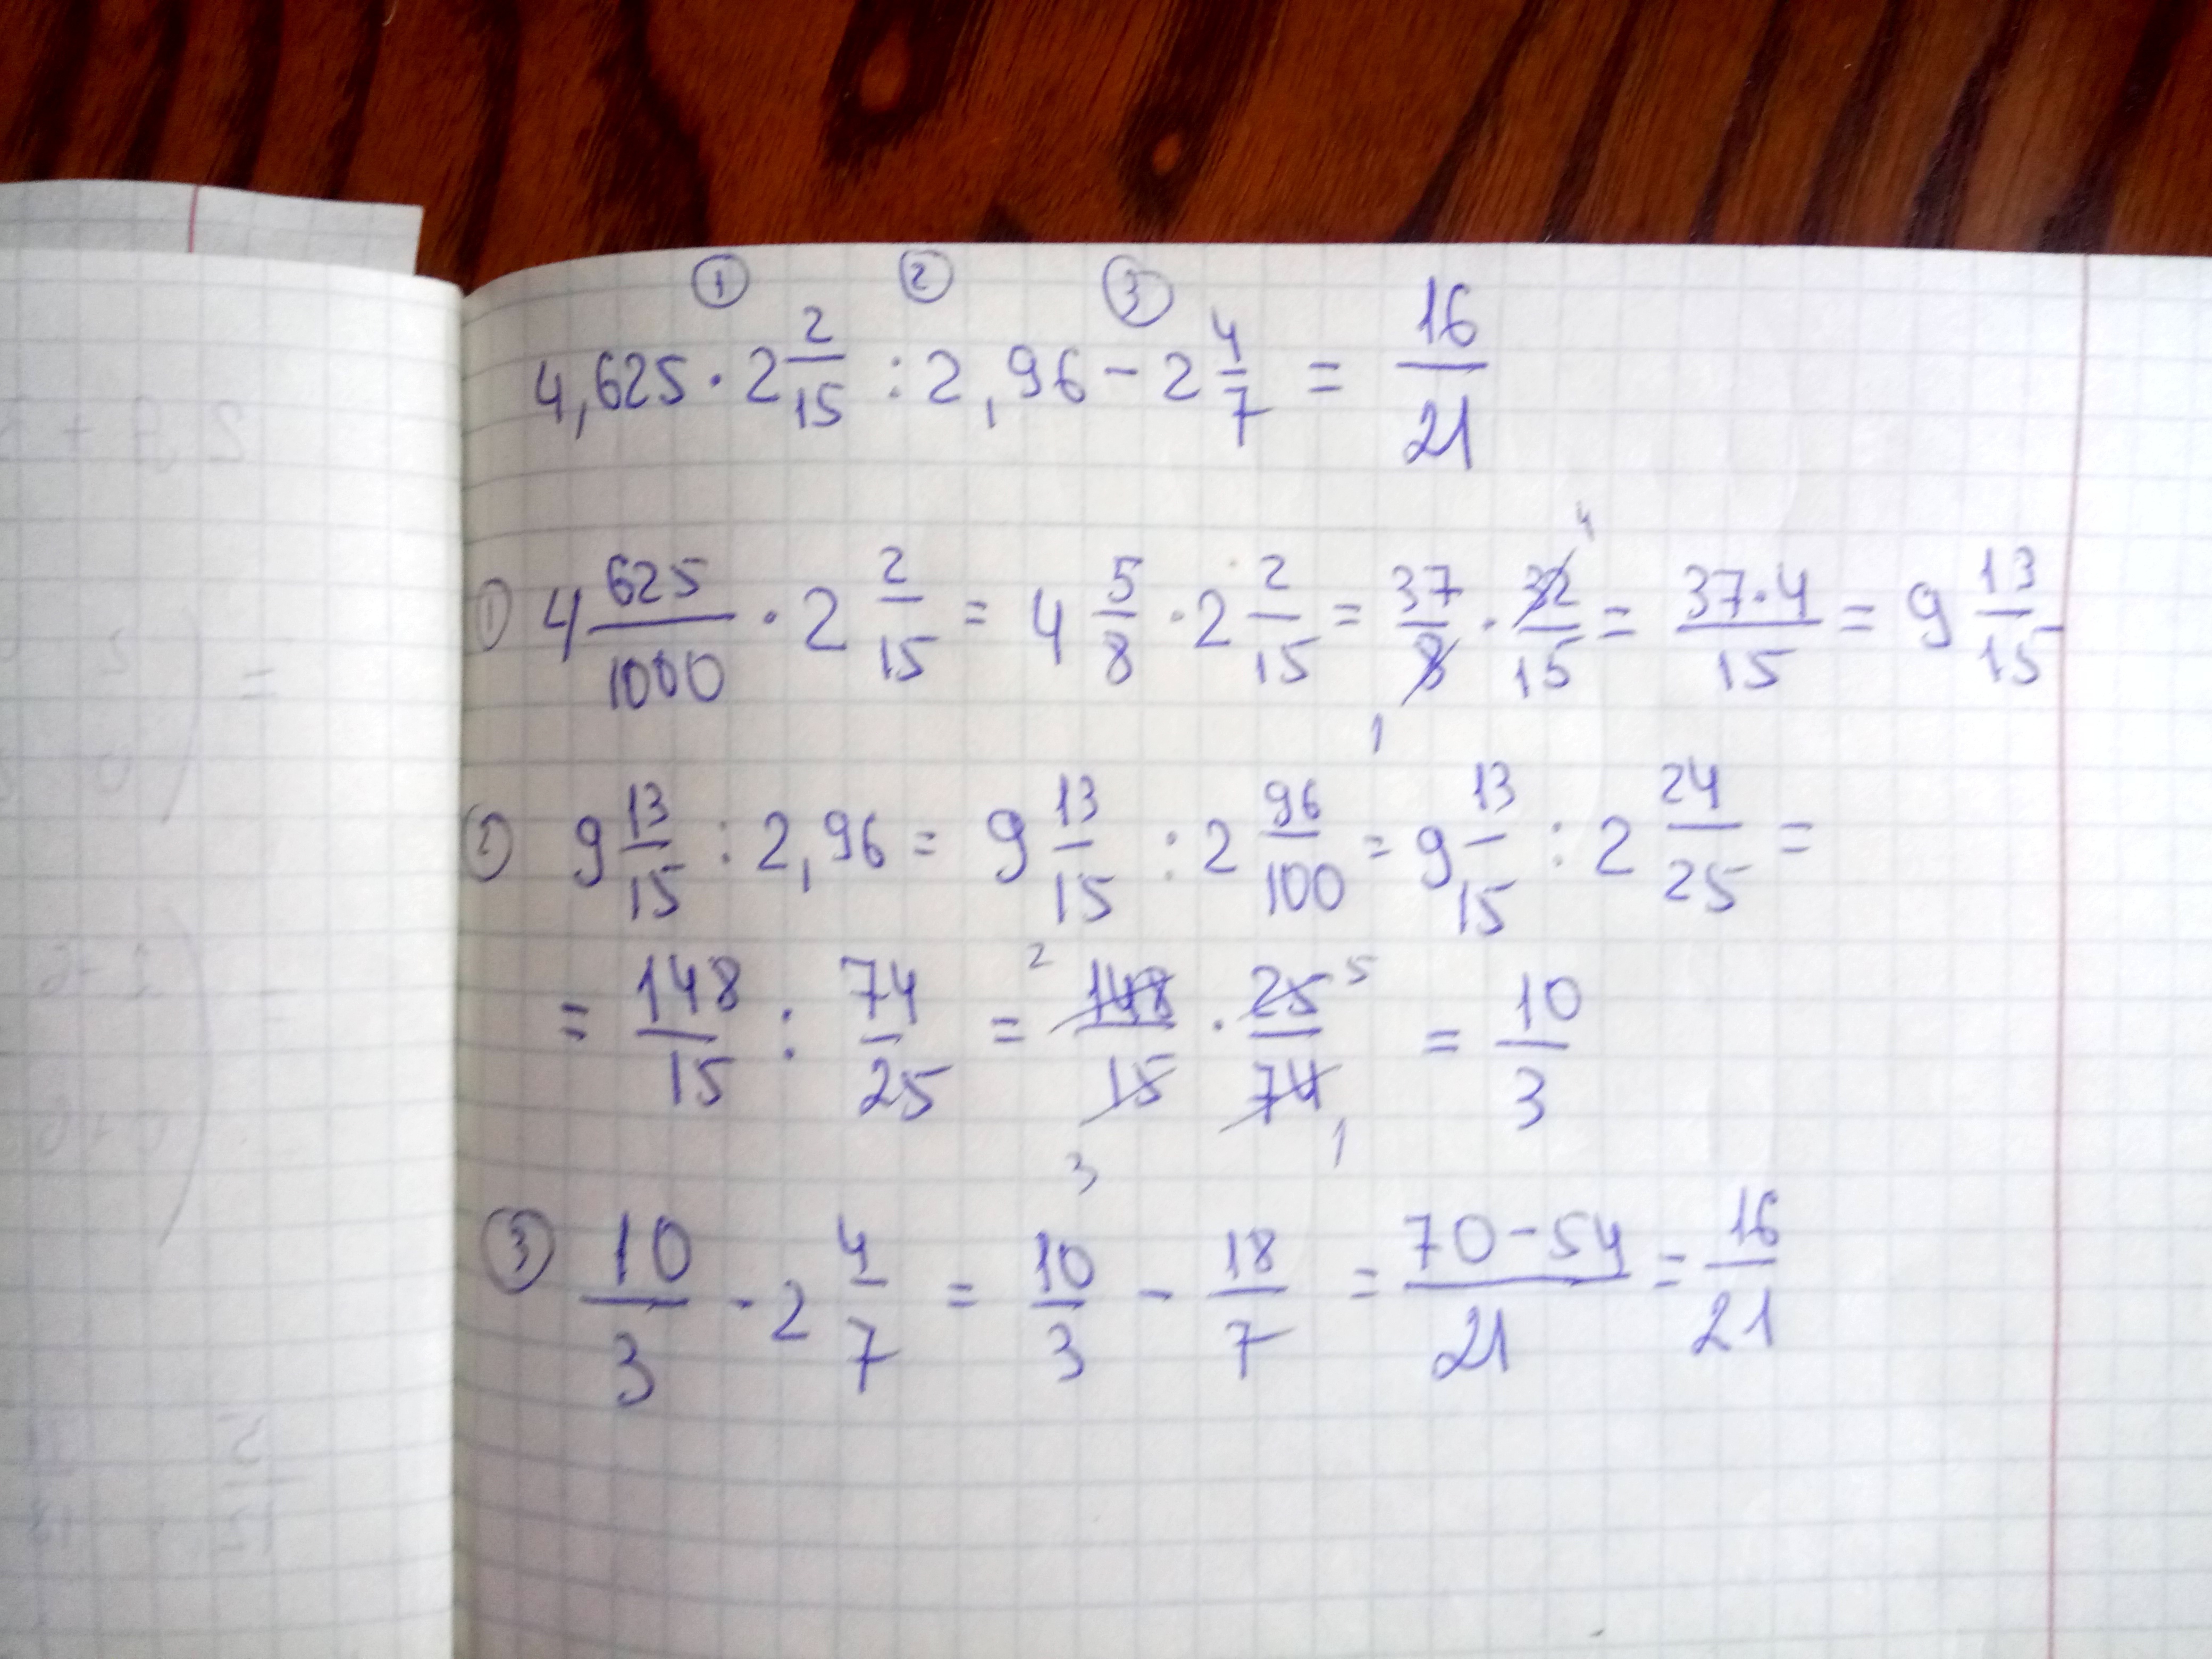 ① ② ③
4,625 · 2 2/15 : 2,96 − 2 4/7 = 16/21
① 4 625/1000 · 2 2/15 = 4 5/8 · 2 2/15 = 37/8 1 · 32/15 4 = 37·4/15 = 9 13/15
② 9 13/15 : 2,96 = 9 13/15 : 2 96/100 = 9 13/15 : 2 24/25 =
= 148/15 : 74/25 = 2 148/15 3 · 25/74 5 1 = 10/3
③ 10/3 - 2 4/7 = 10/3 − 18/7 = 70−54/21 = 16/21